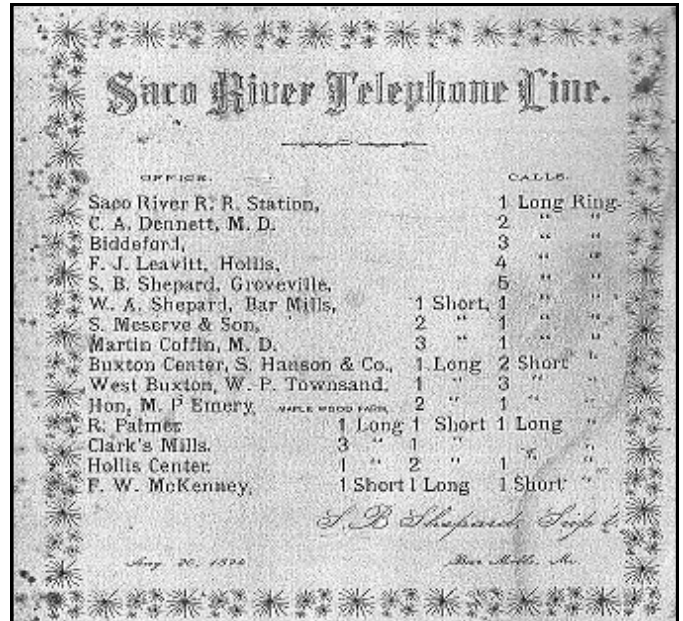 Saco River Telephone Line.
OFFICE. CALLS.
Saco River R. R. Station, 1 Long Ring.
C. A. Dennett, M. D. 2 " "
Biddeford, 3 " "
F. J. Leavitt, Hollis, 4 " "
S. B. Shepard, Groveville, 5 " "
W. A. Shepard, Bar Mills, 1 Short, 1 " "
S. Meserve & Son, 2 " 1 " "
Martin Coffin, M. D. 3 " 1 " "
Buxton Center, S. Hanson & Co., 1 Long 2 Short "
West Buxton, W. P. Townsand, 1 " 3 " "
Hon, M. P Emery, MAPLE WOOD FARM, 2 " 1 " "
R. Palmer, 1 Long 1 Short 1 Long "
Clark's Mills. 3 " 1 " " "
Hollis Center. 1 " 2 " 1 " "
F. W. McKenney, 1 Short 1 Long 1 Short "
S B Shepard, Sup't
Aug 20, Bar Mills, Me.